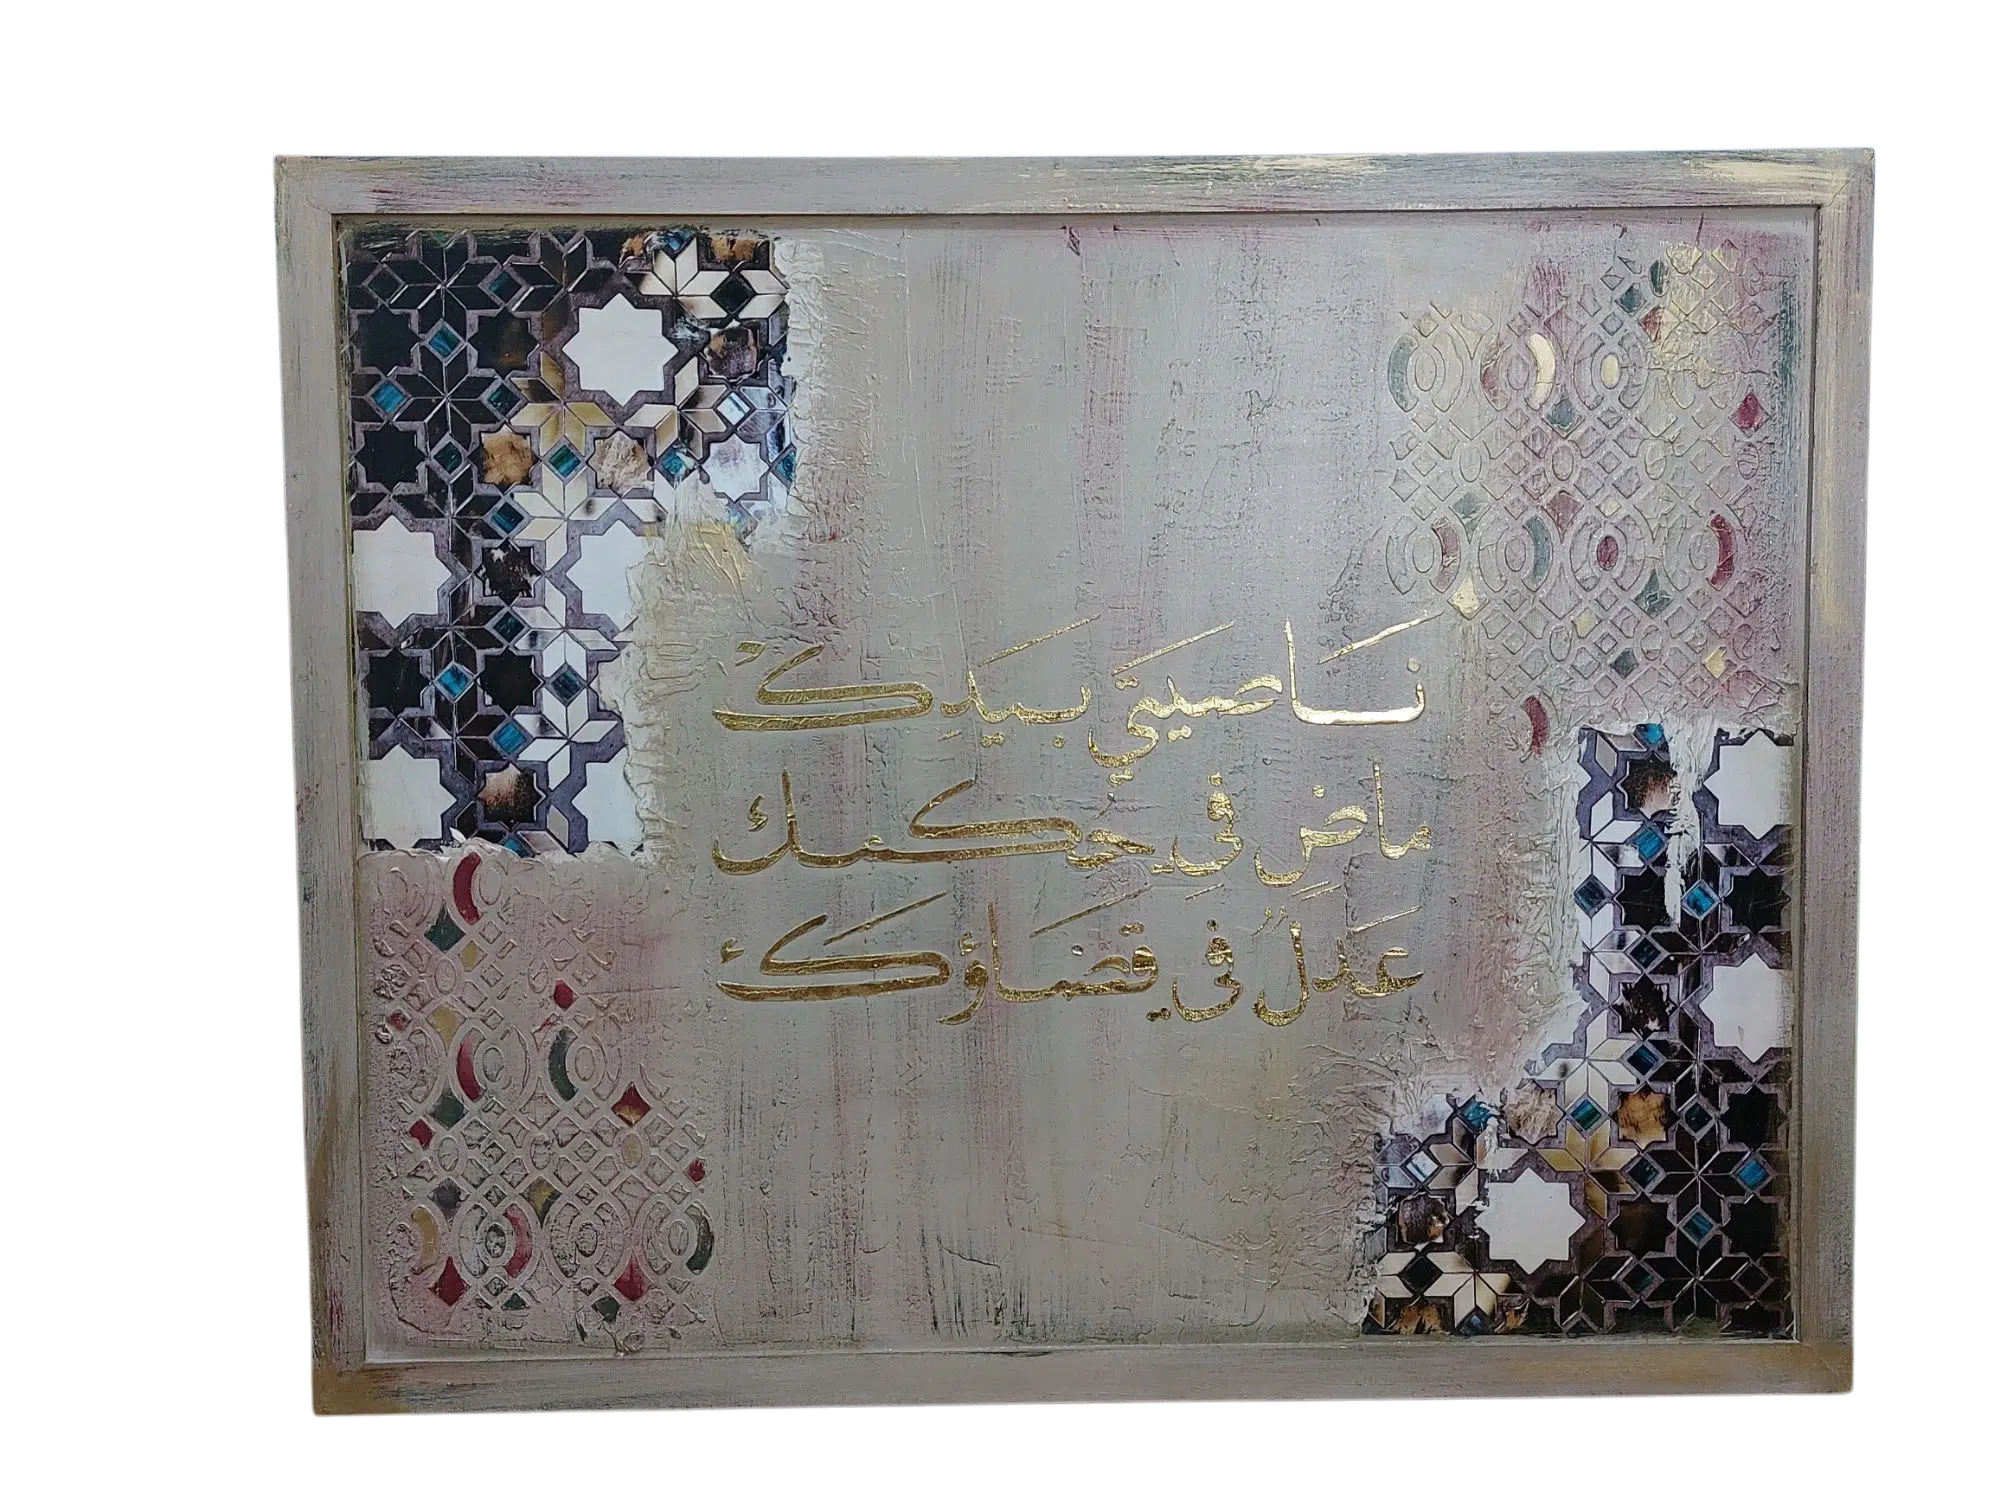 نَاصِيَتِي بِيَدِكَ
مَاضٍ فِي حُكْمك
عَدلٌ فِي قَضَاؤكَ